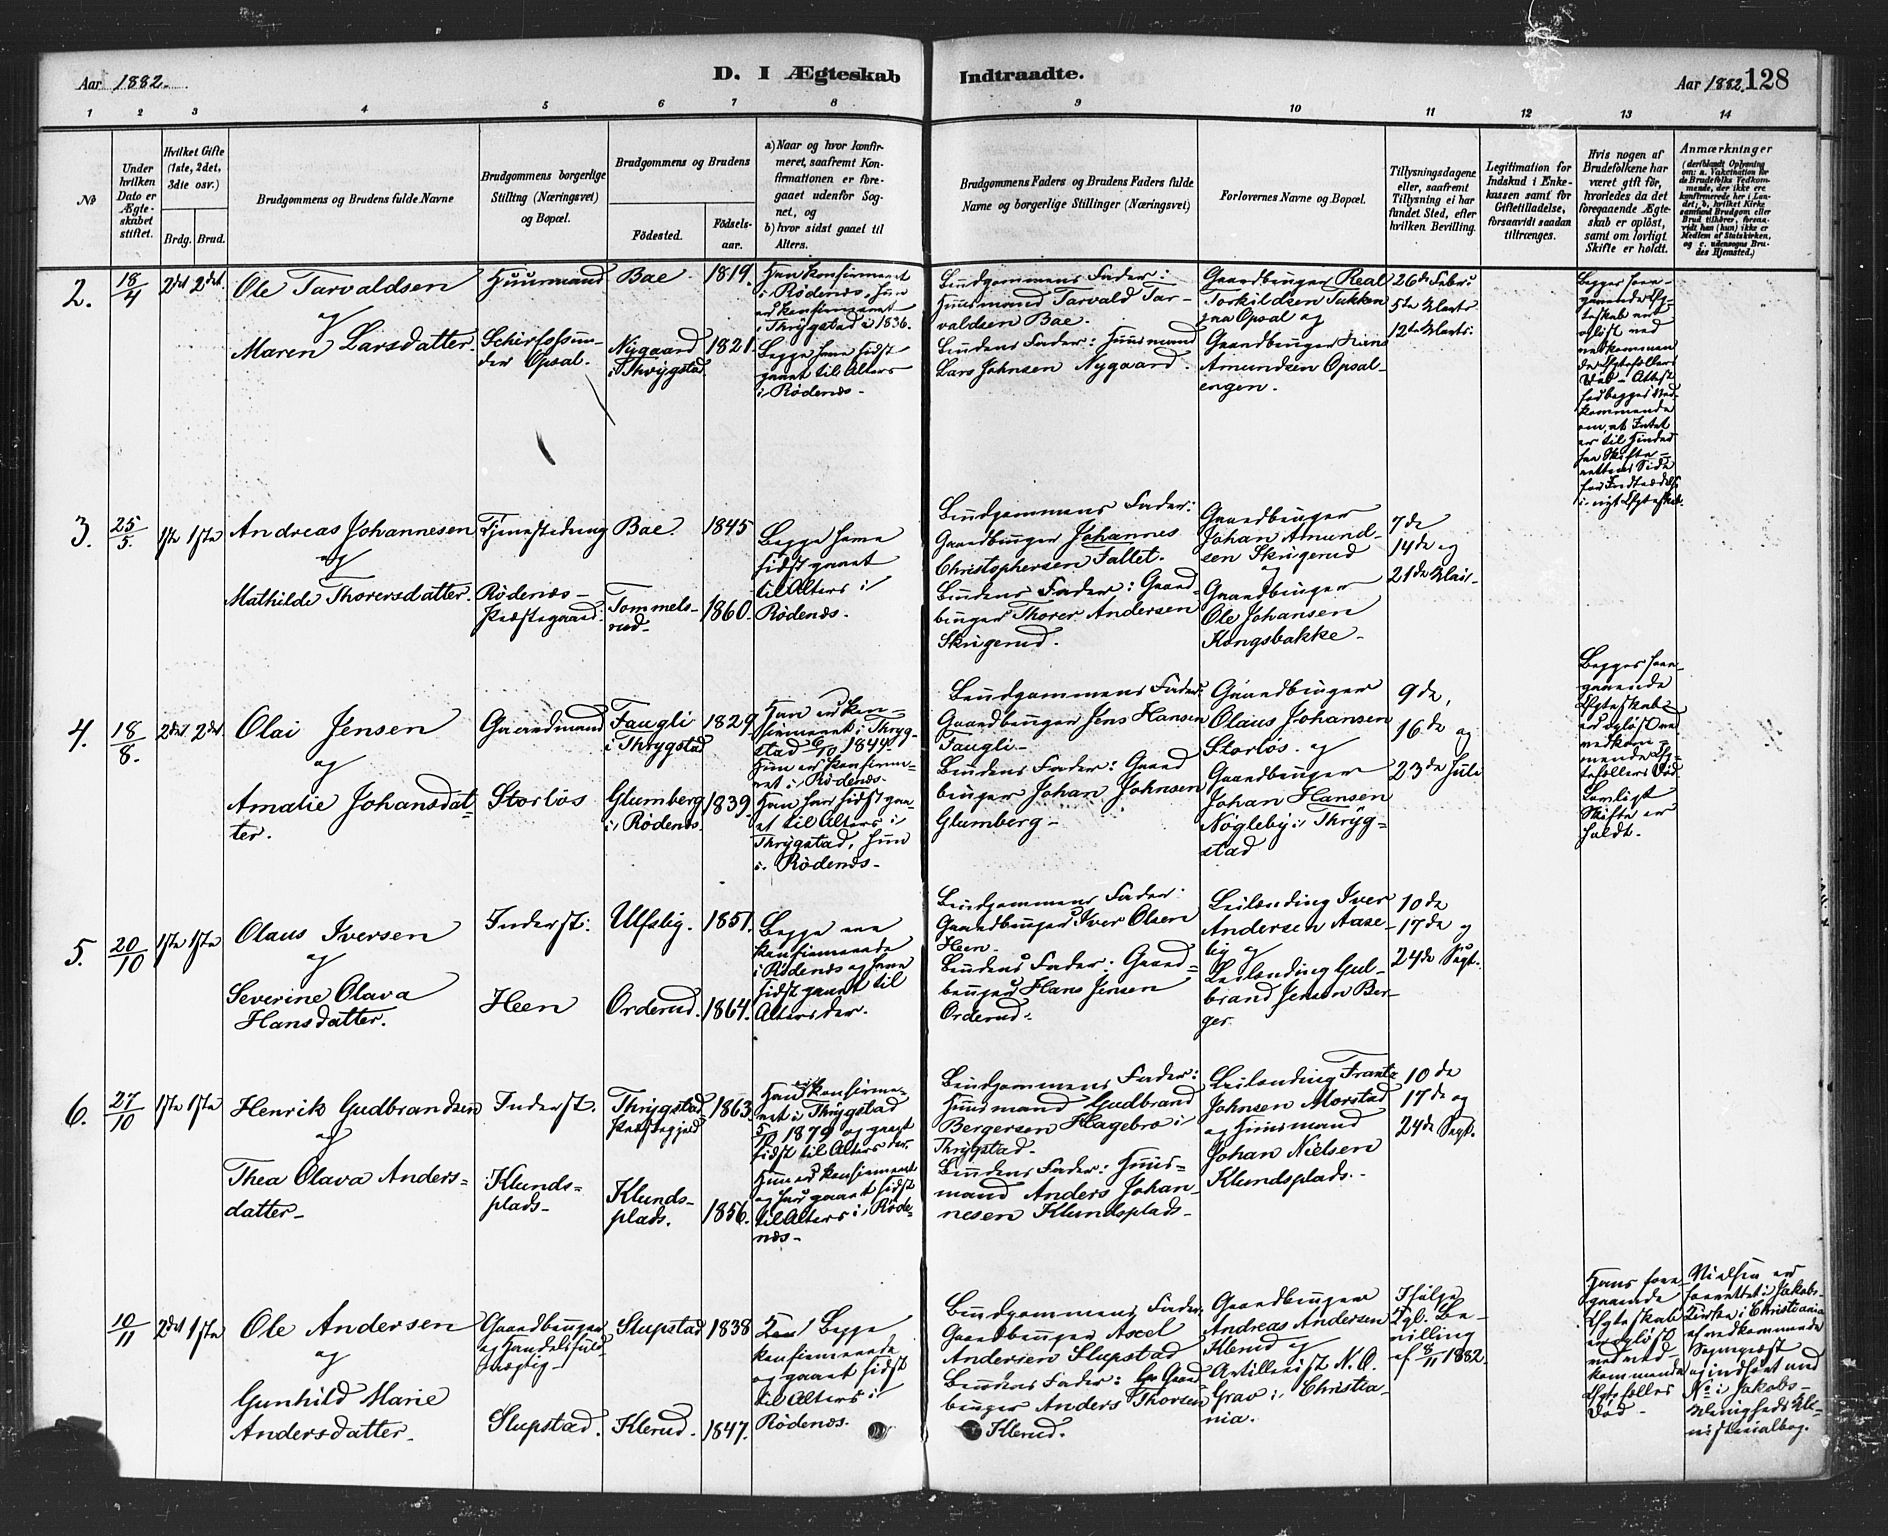 Aar 1882.
D. I Ægteskab Indtraadte.
Aar 1882. 128
1 2 3 4 5 6 7 8 9 10 11 12 13 14
No
Under hvilken Dato er Ægteskabet stiftet.
Hvilket Gifte (1ste, 2det, 3die osv.)
Brdg. Brud.
Brudgommens og Brudens fulde Navne
Brudgommens borgerlige Stilling (Næringsvei) og Bopæl.
Brudgommens og Brudens
Fødested.
Fødselsaar.
a) Naar og hvor konfirmeret, saafremt Konfirmationen er foregaaet udenfor Sognet, og
b) hvor sidst gaaet til Alters.
Brudgommens Faders og Brudens Faders fulde Navne og borgerlige Stillinger (Næringsvei)
Forlovernes Navne og Bopæl.
Tillysningsdagene eller, saafremt Tillysning ei har fundet Sted, efter hvilken Bevilling.
Legitimation for Indskud i Enkekassen samt for Giftetilladelse, forsaavidt saadan tiltrænges.
Hvis nogen af Brudefolkene har været gift før, hvorledes da det foregaaende Ægteskab er opløst, samt om lovligt Skifte er holdt.
Anmærkninger
2.
18/4
2det 2det
Ole Tarvaldsen
og
Maren Larsdatter.
Huusmand
Schirfssun-
der Opsal.
Bae.
Nygaard
i Thrygstad.
1819.
1821.
Han konfirmeret
i Rødenes, hun
er konfirmeret
i Thrygstad i 1836.
Begge have sidst
gaaet til Alters
i Rødenæs.
Brudgommens Fader:
Huusmand Tarvald Tar-
valdsen Bae.
Brudens Fader: Huusmand
Lars Johnsen Nygaard.
Gaardbruger Real
Torkildsen Tukken
paa Opsal og
Gaardbruger Hans
Amundsen Opsal-
engen.
26de Febr:
5te Marts
12te Marts:
Begges fore-
gaaende Æg-
teskab ere
opløst ved
vedkommen
de Ægtefællers
Død - Attest
for begges Ved-
kommende
om, at Intet
er til Hinder
fra Skifte-
rettens Side
for Indtrædelse
i nyt Ægteskab.
3.
25/5.
1ste 1ste
Andreas Johannesen
og
Mathilde Thorersdatter.
Tjenestedreng
Rødenæs-
Præstegaard.
Bae.
Tommels-
rud.
1845
1860.
Begge have
sidst gaaet
til Alters i
Rødenæs.
Brudgommens Fader:
Gaardbruger Johannes
Christophersen Fallet.
Brudens Fader: Gaard-
bruger Thorer Andersen
Skrigerud.
Gaardbruger
Johan Amund-
sen Skrigerud
og
Gaardbruger
Ole Johansen
Kongsbakke.
7de
14de og
21de Mai.
4.
18/8.
2det 2det
Olai Jensen
og
Amalie Johansdat-
ter.
Gaardmand
Storløs
Faugli
i Thrygstad
Glumberg
i Rødenæs.
1829.
1839.
Han er kon-
firmeret i Thryg-
stad 6/10 1844
Hun er konfirme-
ret i Rødenæs.
Han har sidst gaa-
et til Alters i
Thrygstad, hun
i Rødenæs.
Brudgommens Fader:
Gaardbruger Jens Hansen
Faugli.
Brudens Fader: Gaard
bruger Johan Johnsen
Glumberg.
Gaardbruger
Olaus Johansen
Storløs og
Gaardbruger
Johan Hansen
Nøgleby i Thryg-
stad
9de,
16de og
23de Juli
Begges fore-
gaaende
Ægteskab
er opløst ved
vedkom-
mende Æg-
tefællers Død.
Lovligt
Skifte er
holdt.
5.
20/10
1ste 1ste
Olaus Iversen
og
Severine Olava
Hansdatter.
Inderst:
Heen
Ulfsby.
Orderud.
1851.
1864.
Begge ere
konfirmerede
i Rødenæs og have
sidst gaaet til
Alters der.
Brudgommens Fader:
Gaardbruger Iver Olsen
Heen.
Brudens Fader: Gaard-
bruger Hans Jensen
Orderud.
Leilending Iver
Andersen Aase-
by og
Leilending Gul-
brand Jensen Ber-
ger
10de
17de og
24de Sept.
6.
27/10
1ste 1ste
Henrik Gudbrandsen
og
Thea Olava Anders-
datter.
Inderst.
Klunds-
plads.
Thrygstad
Præstegjeld
Klunds-
plads.
1863
1856.
Han er konfirme-
ret i Thrygstad
5/10 1879 og gaaet
sidst til Alters der.
Hun er konfirmeret
og har gaaet sidst
til Alters i Røde-
næs.
Brudgommens Fader:
Huusmand Gudbrand
Bergersen Hagebro i
Thrygstad.
Brudens Fader: Huus-
mand Anders Johan-
nesen Klundsplads.
Leilending Frantz
Johnsen Morstad
og Huusmand
Johan Nielsen
Klundsplads.
10de
17de og
24de Sept.
10/11
2det 1ste
Ole Andersen
og
Gunhild Marie
Andersdatter.
Gaardbruger
og Handelsfuld-
mægtig.
Slupstad.
Slupstad
Klerud.
1838
1847.
Begge
konfirmerede
og gaaet sidst
til Alters i
Rødenæs.
Brudgommens Fader:
Gaardbruger Axel
Andersen Slupstad
Brudens Fader: Gaard
bruger Anders Thorsen
Klerud.
Gaardbruger
Andreas Andersen
Klerud og
Artillerist N. O.
Grav i Christia-
nia.
Ifølge
Kgl. Be-
villing
af 8/11 1882.
Hans fore-
gaaende
Ægteskab
er opløst
ved ved-
kommende
Ægtefælles
Død.
Vielsen er
forrettet i Jakobs-
Kirke i Christiania
af vedkommende
Sognepræst
og indført under
No i Jakobs-
Menigheds Mi-
nisterialbog.